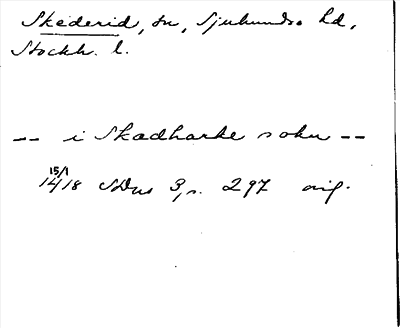 Skederid, sn, Sjuhundra hd,
Stockh. l.
-- i Skadharke sokn --
15/1
1418 SDns 3, s. 297 orig.